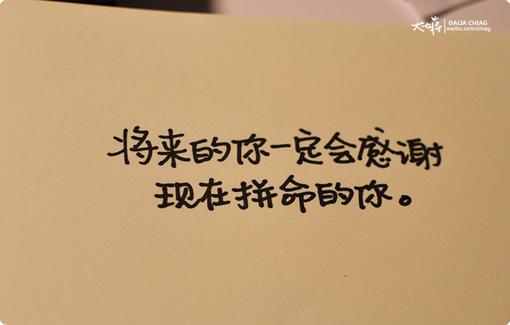 DALIA CHIAG
weibo.com/chiag
将来的你一定会感谢
现在拼命的你。